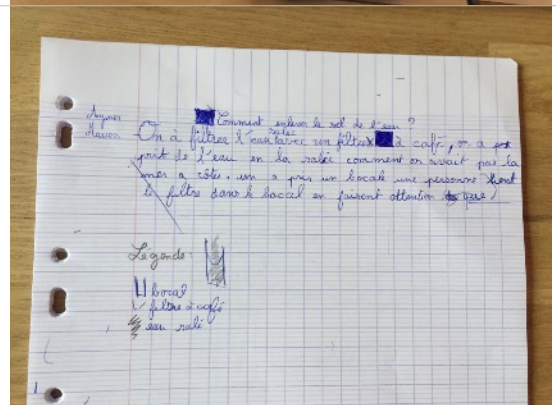 Comment enlever le sel de l'eau ?
On à filtrer l'eau salée avec un filtre à café, on a
prit de l'eau en la salée comment on avait pas la
mer a côte. un a pris un bocale une personne tient
le filtre dans le baccal en faisent attention
Légende :
bocal
filtre à café
eau salé